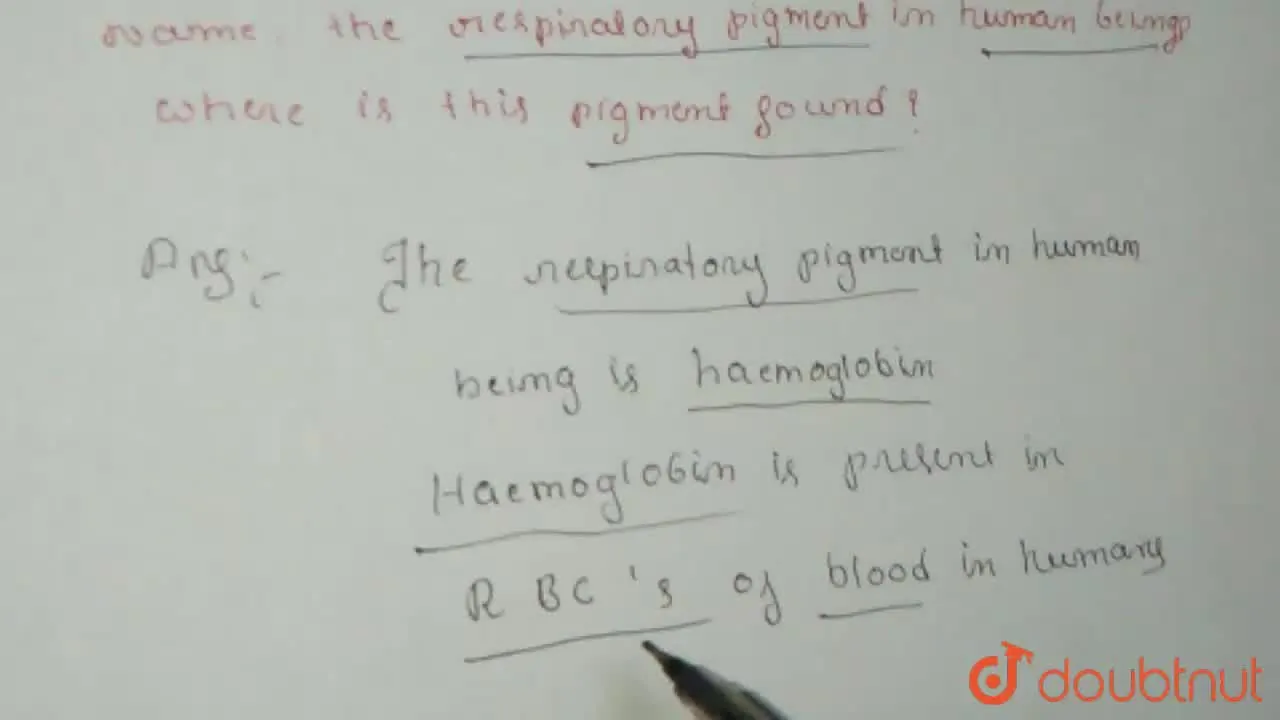 name the respiratory pigment in human beings
where is this pigment found?
Ans:- The respiratory pigment in human
being is haemoglobin
Haemoglobin is present in
RBC's of blood in humans
doubtnut